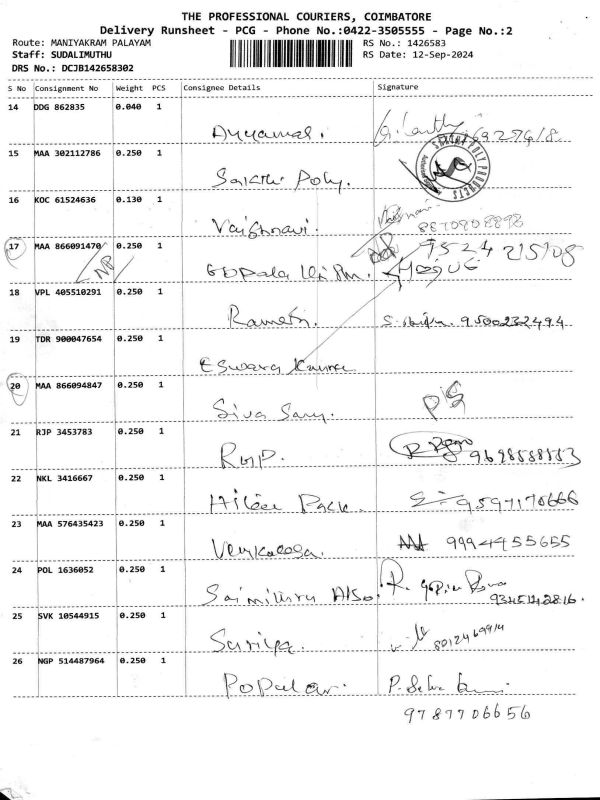 THE PROFESSIONAL COURIERS, COIMBATORE
Delivery Runsheet - PCG - Phone No.:0422-3505555 - Page No.:2
Route: MANIYAKRAM PALAYAM RS No.: 1426583
Staff: SUDALIMUTHU RS Date: 12-Sep-2024
DRS No.: DCJB142658302
S No Consignment No Weight PCS Consignee Details Signature
14 DDG 862835 0.040 1
Ayyamal.
15 MAA 302112786 0.250 1
Sakthi Poly.
POLY PRODUCTS
16 KOC 61524636 0.130 1
Vaishnavi. 8870908898
17 MAA 866091470 0.250 1
NP
Gopala 7524 215108
18 VPL 405510291 0.250 1
Ramesh. 9500232494
19 TDR 900047654 0.250 1
Eswara Kumar
20 MAA 866094847 0.250 1
Siva Samy.
21 RJP 3453783 0.250 1
Rmp.
22 NKL 3416667 0.250 1
Pack. 9597170666
23 MAA 576435423 0.250 1
Venkatesa. 9994455655
24 POL 1636052 0.250 1
25 SVK 10544915 0.250 1
Suriya. 8012469914
26 NGP 514487964 0.250 1
Popular. P. Selva
9787706656